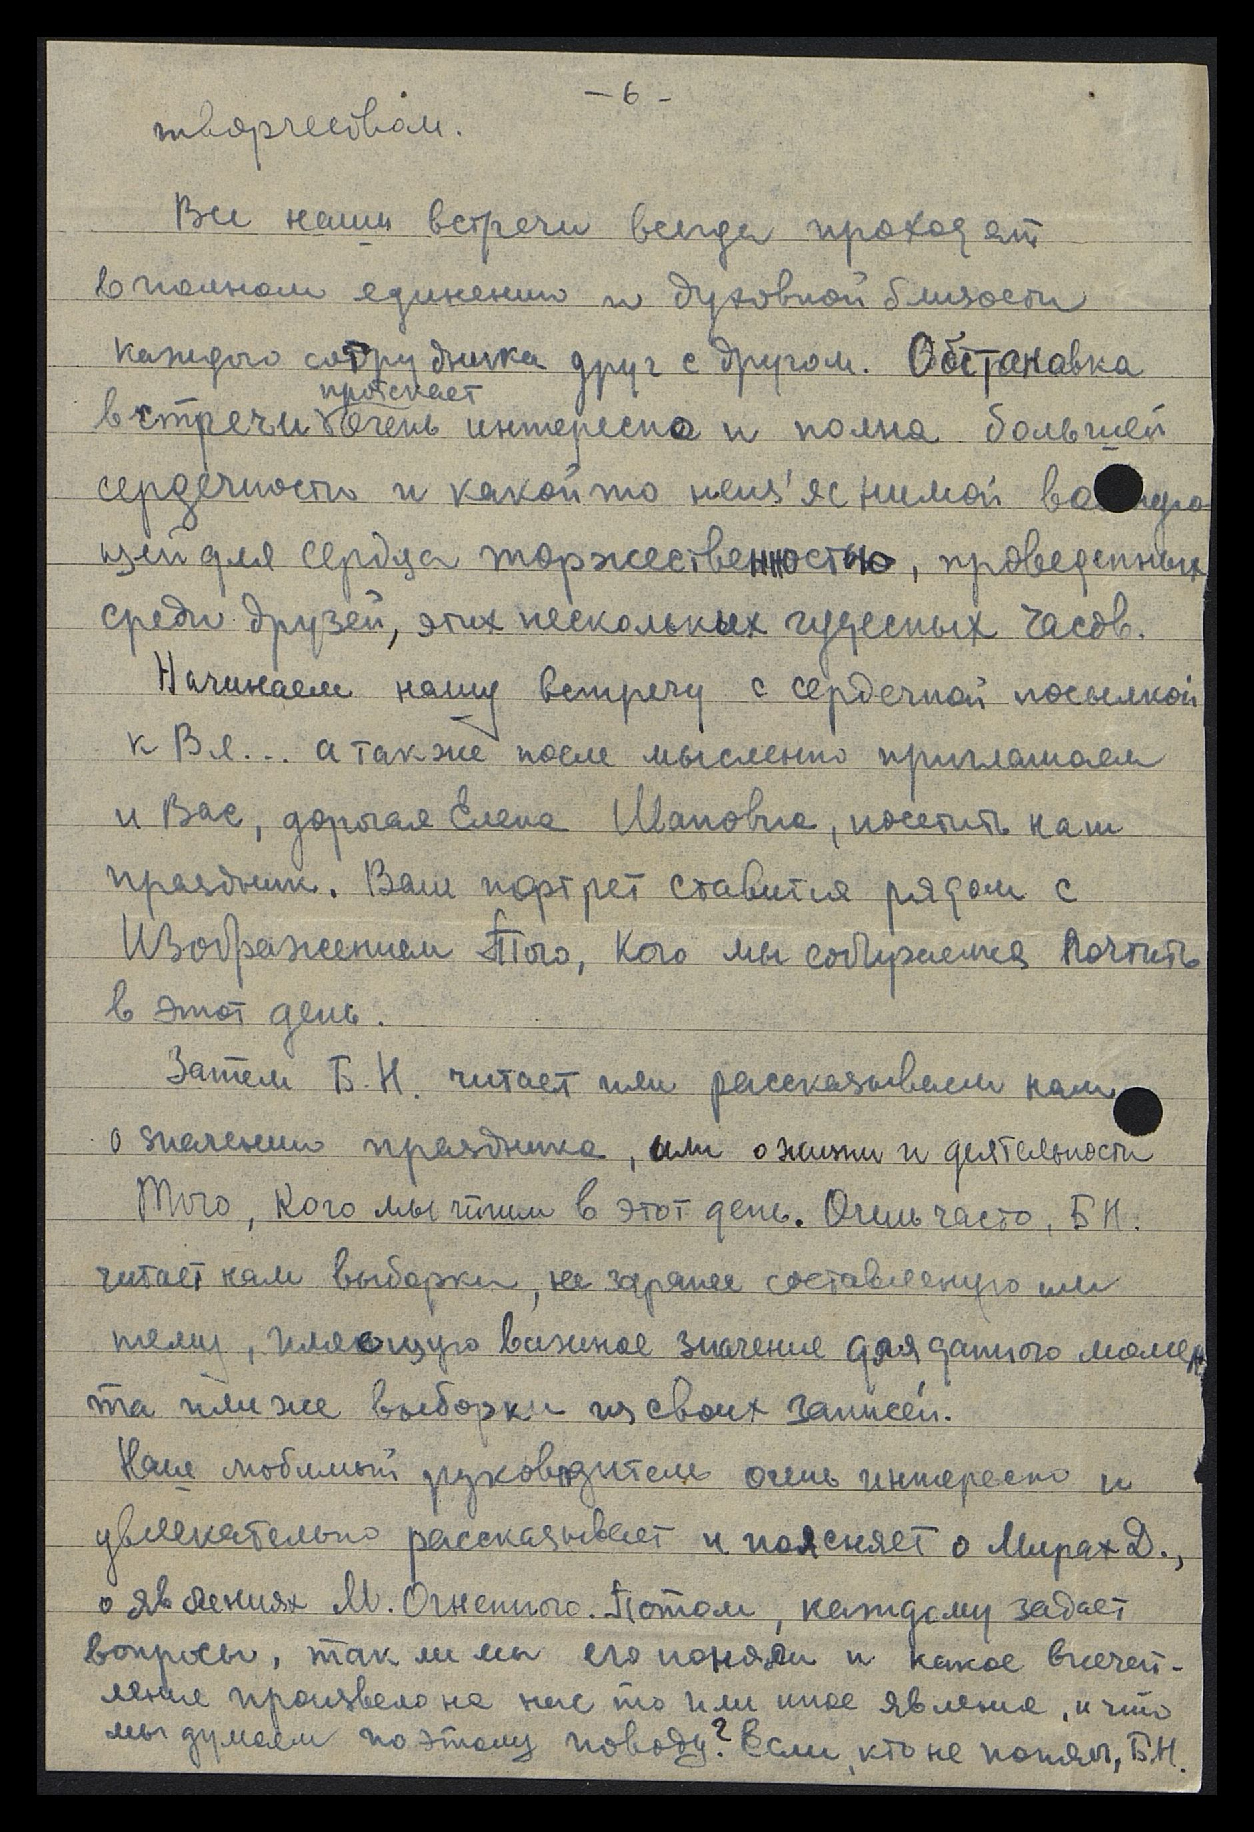 - 6 -
творчеством.
Все наши встречи всегда проходят
в полном единении и духовной близости
каждого сотрудника друг с другом. Обстановка
протекает
встречи очень интересно и полна большей
сердечности и какой то неиз'яснимой
щей для сердца торжественностью, проведенных
среди друзей, этих нескольких чудесных часов.
Начинаем нашу встречу с сердечной посылкой
к Вл... а также после мысленно приглашаем
и Вас, дорогая Елена Ивановна, посетить наш
праздник. Ваш портрет ставится рядом с
Изображением Того, Кого мы собираемся почтить
в этот день.
Затем Б.Н. читает или рассказывает нам
о значении праздника, или о жизни и деятельности
Того, Кого мы чтим в этот день. Очень часто, Б.Н.
читает нам выборки, на заранее составленную им
тему, имеющую важное значение для данного момен
та или же выборки из своих записей.
Наш любимый руководитель очень интересно и
увлекательно рассказывает и поясняет о Мирах Д.,
о явлениях М. Огненного. Потом, каждому задает
вопросы, так ли мы его поняли и какое впечат-
ление произвело на нас то или иное явление, и что
мы думаем по этому поводу? Если, кто не понял, Б.Н.